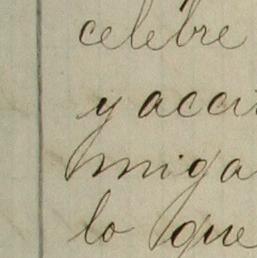 celebre
y acci
miga
lo que